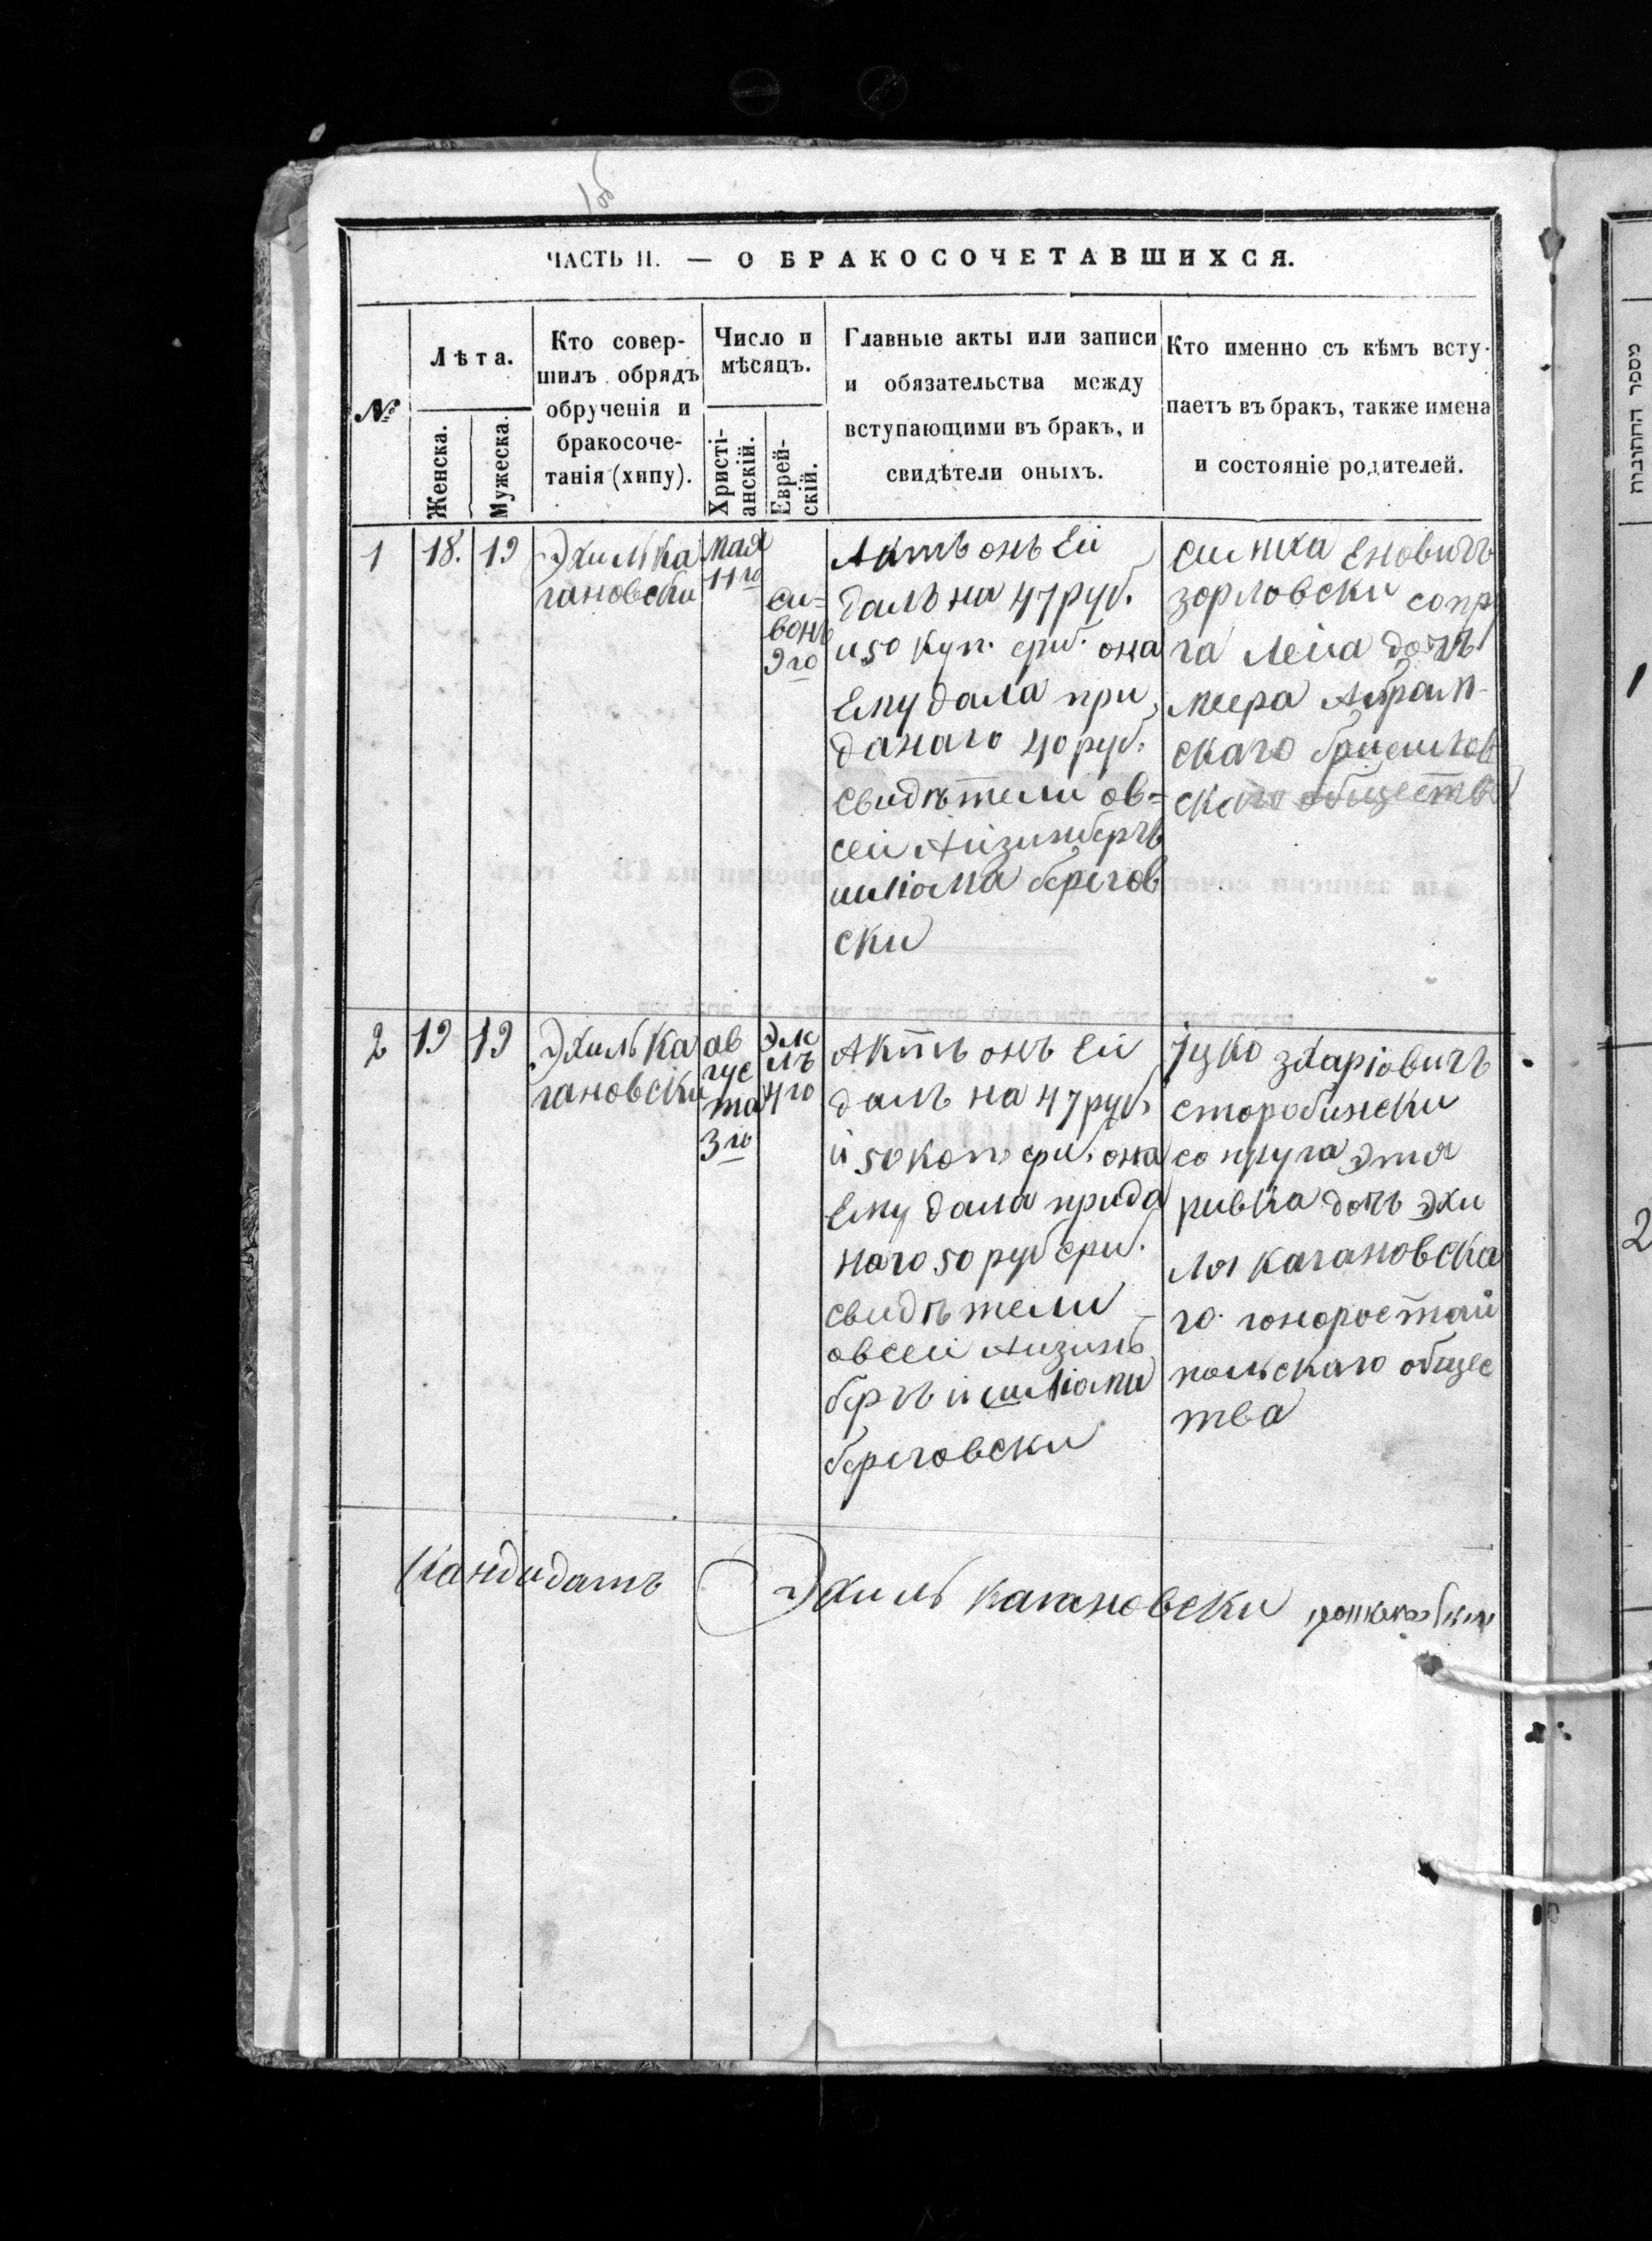 ЧАСТЬ II. — О БРАКОСОЧЕТАВШИХСЯ.
№
Лѣта.
Женска.
Мужеска.
Кто совер-
шилъ обрядъ
обрученія и
бракосоче-
танія (хипу).
Число и
мѣсяцъ.
Христі-
анскій.
Еврей-
скій.
Главные акты или записи
и обязательства между
вступающими въ бракъ, и
свидѣтели оныхъ.
Кто именно съ кѣмъ всту-
паетъ въ бракъ, также имена
и состояніе родителей.
1
18.
19
Эхиль Ка
гановски
мая
11го
си=
вонъ
9го
Актъ онъ Еи
далъ на 47 руб.
и 50 куп. сри. она
Ему дала при
данаго 40 руб.
свидѣтели ов=
сеи Аизинберъ
шліома берегов
ски
симха Еновичъ
зорловски супр
га Леиа дочъ
меера Абрам-
скаго брусилов
скаго общества
2
19
19
Эхиль Ка
гановски
ав
гус
та
3го
эл
лъ
4го
Актъ онъ Еи
далъ на 47 руб.
и 50 коп. сри. она
Ему дала прида
наго 50 руб сри.
свидѣтели
овсеи Аизинъ
беръ и шліоми
береговски
Іцко зхаріовичъ
старобински
сопруга Этя
ривка дочъ эхи
ля кагановска
го. гоноростай
польскаго общес
тва
Кандидатъ
Эхиль кагановски
מספר החתונות
1
2